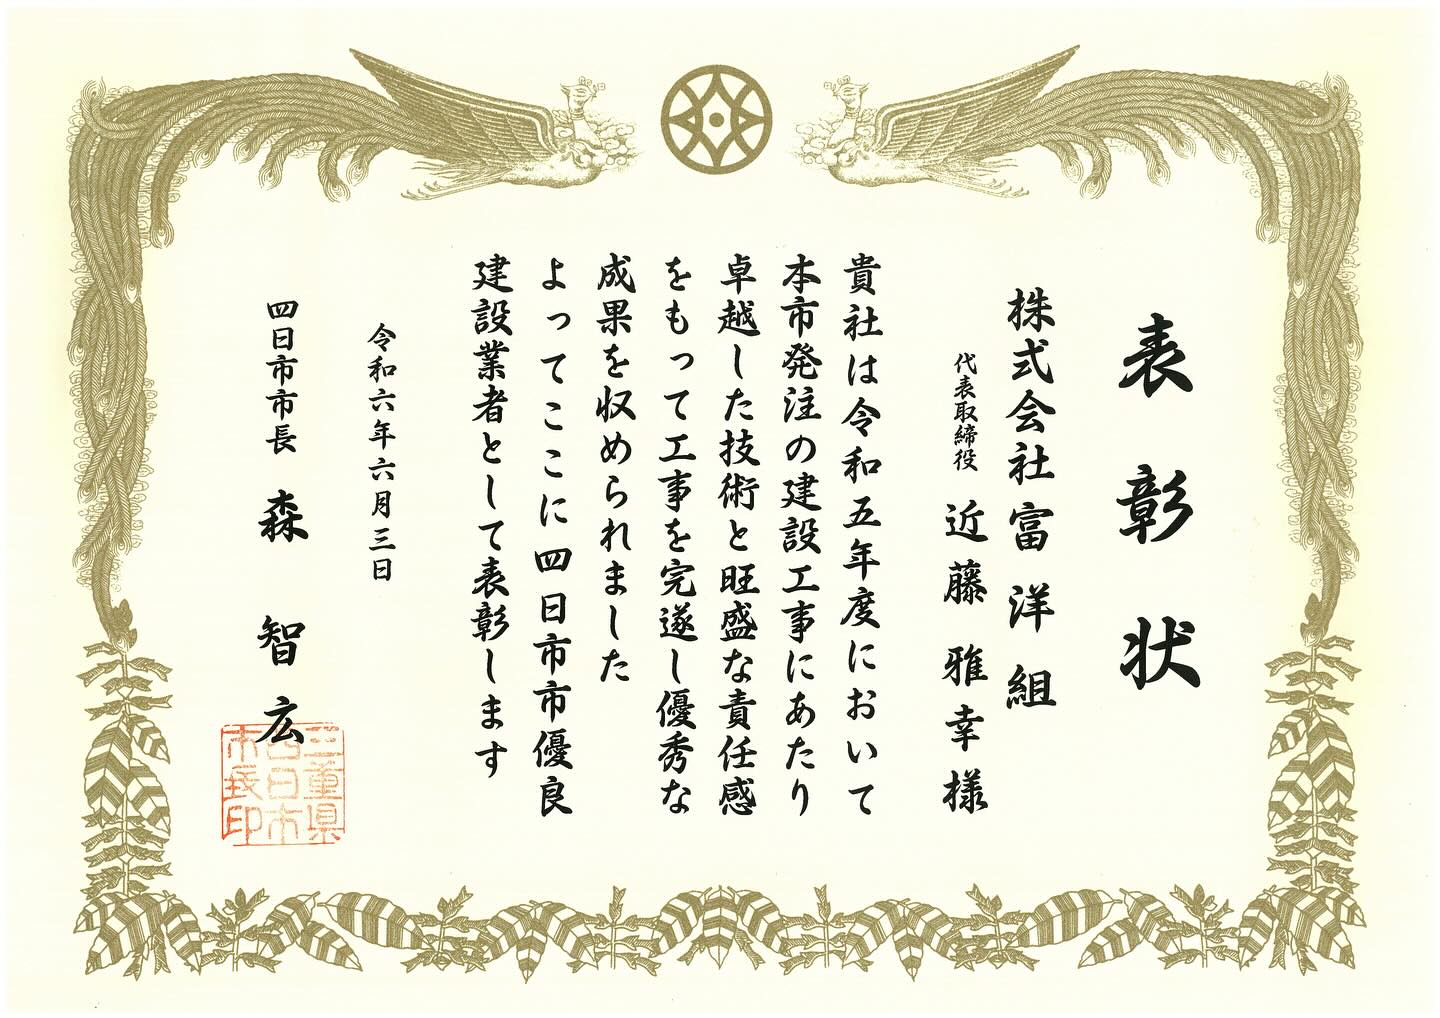 表彰状
株式会社富洋組
代表取締役 近藤雅幸様
貴社は令和五年度において
本市発注の建設工事にあたり
卓越した技術と旺盛な責任感
をもって工事を完遂し優秀な
成果を収められました
よってここに四日市市優良
建設業者として表彰します
令和六年六月三日
四日市市長 森智広
三重県
四日市
市長印